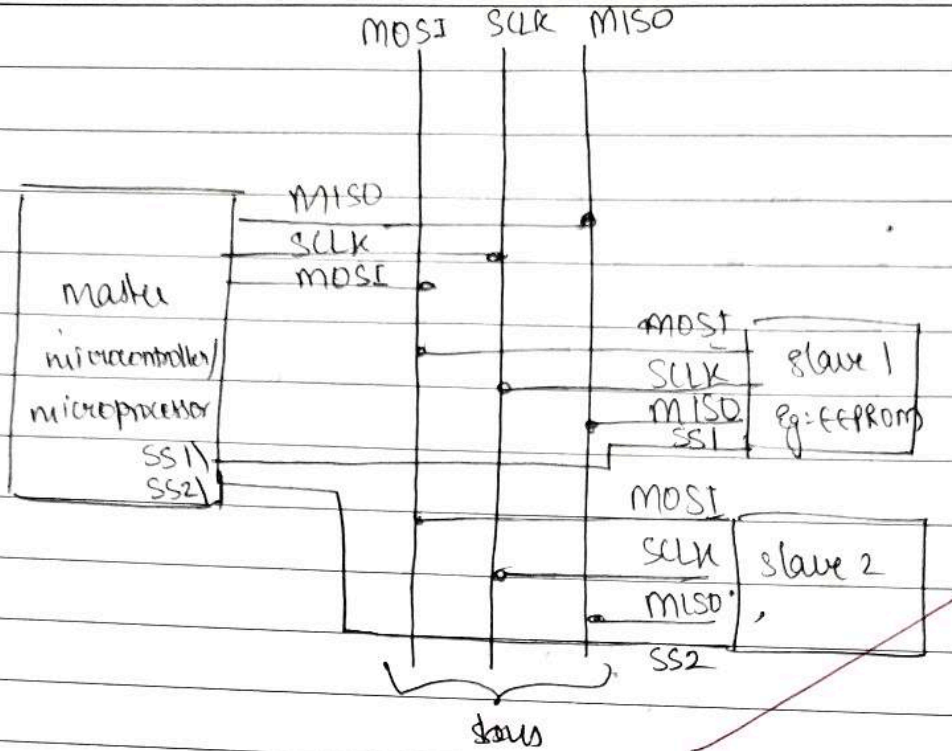 MOSI SCLK MISO
MISO
SCLK
MOSI
Master
microcontroller/
microprocessor
SS1
SS2
MOSI
SCLK
MISO
SS1
Slave 1
Eg: EEPROM
MOSI
SCLK
MISO
SS2
Slave 2